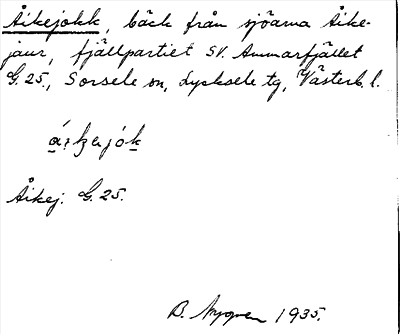 Åikejokk, bäck från sjöarna Åike-
jaur, fjällpartiet SV. Ammarfjället
G. 25, Sorsele sn, Lycksele tg, Västerb. l.
Åikej. G. 25.
B. Nygren 1935.